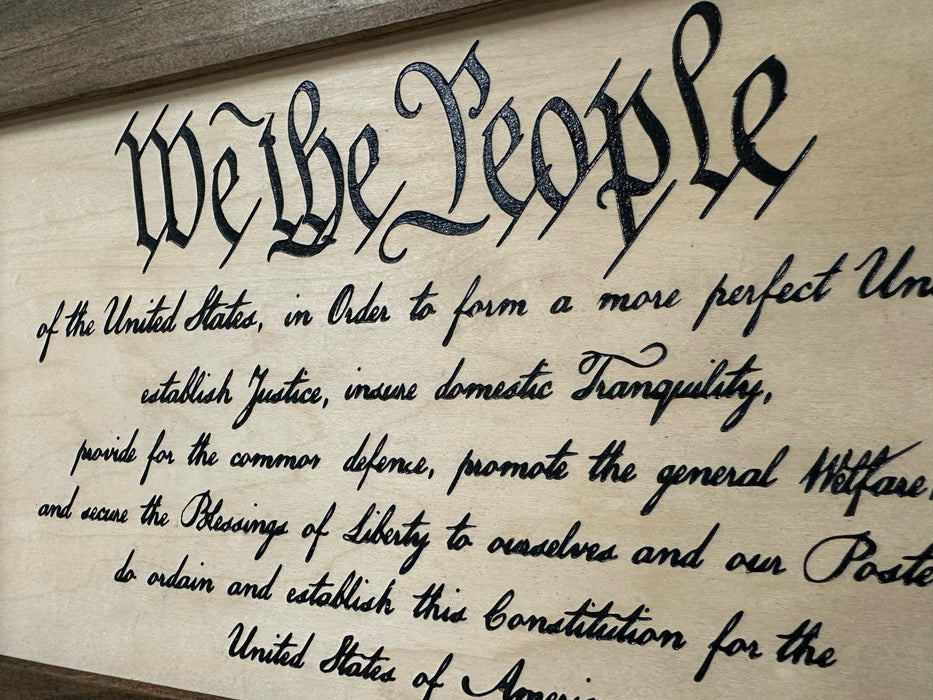 We the People
of the United States, in Order to form a more perfect Un
establish Justice, insure domestic Tranquility,
provide for the common defence, promote the general Welfare,
and secure the Blessings of Liberty to ourselves and our Poste
do ordain and establish this Constitution for the
United States of Ameri